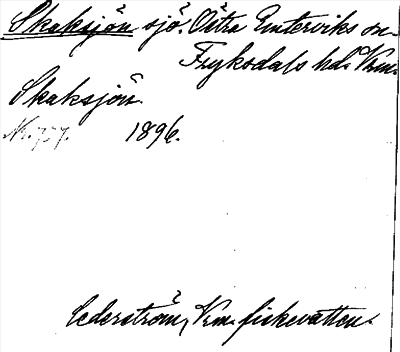 Skaksjön sjö. Östra Emterviks sn.
Fryksdals hd. Vrm.
Skaksjön
Nr. 737. 1896.
Cederström, Vrm. fiskevatten.